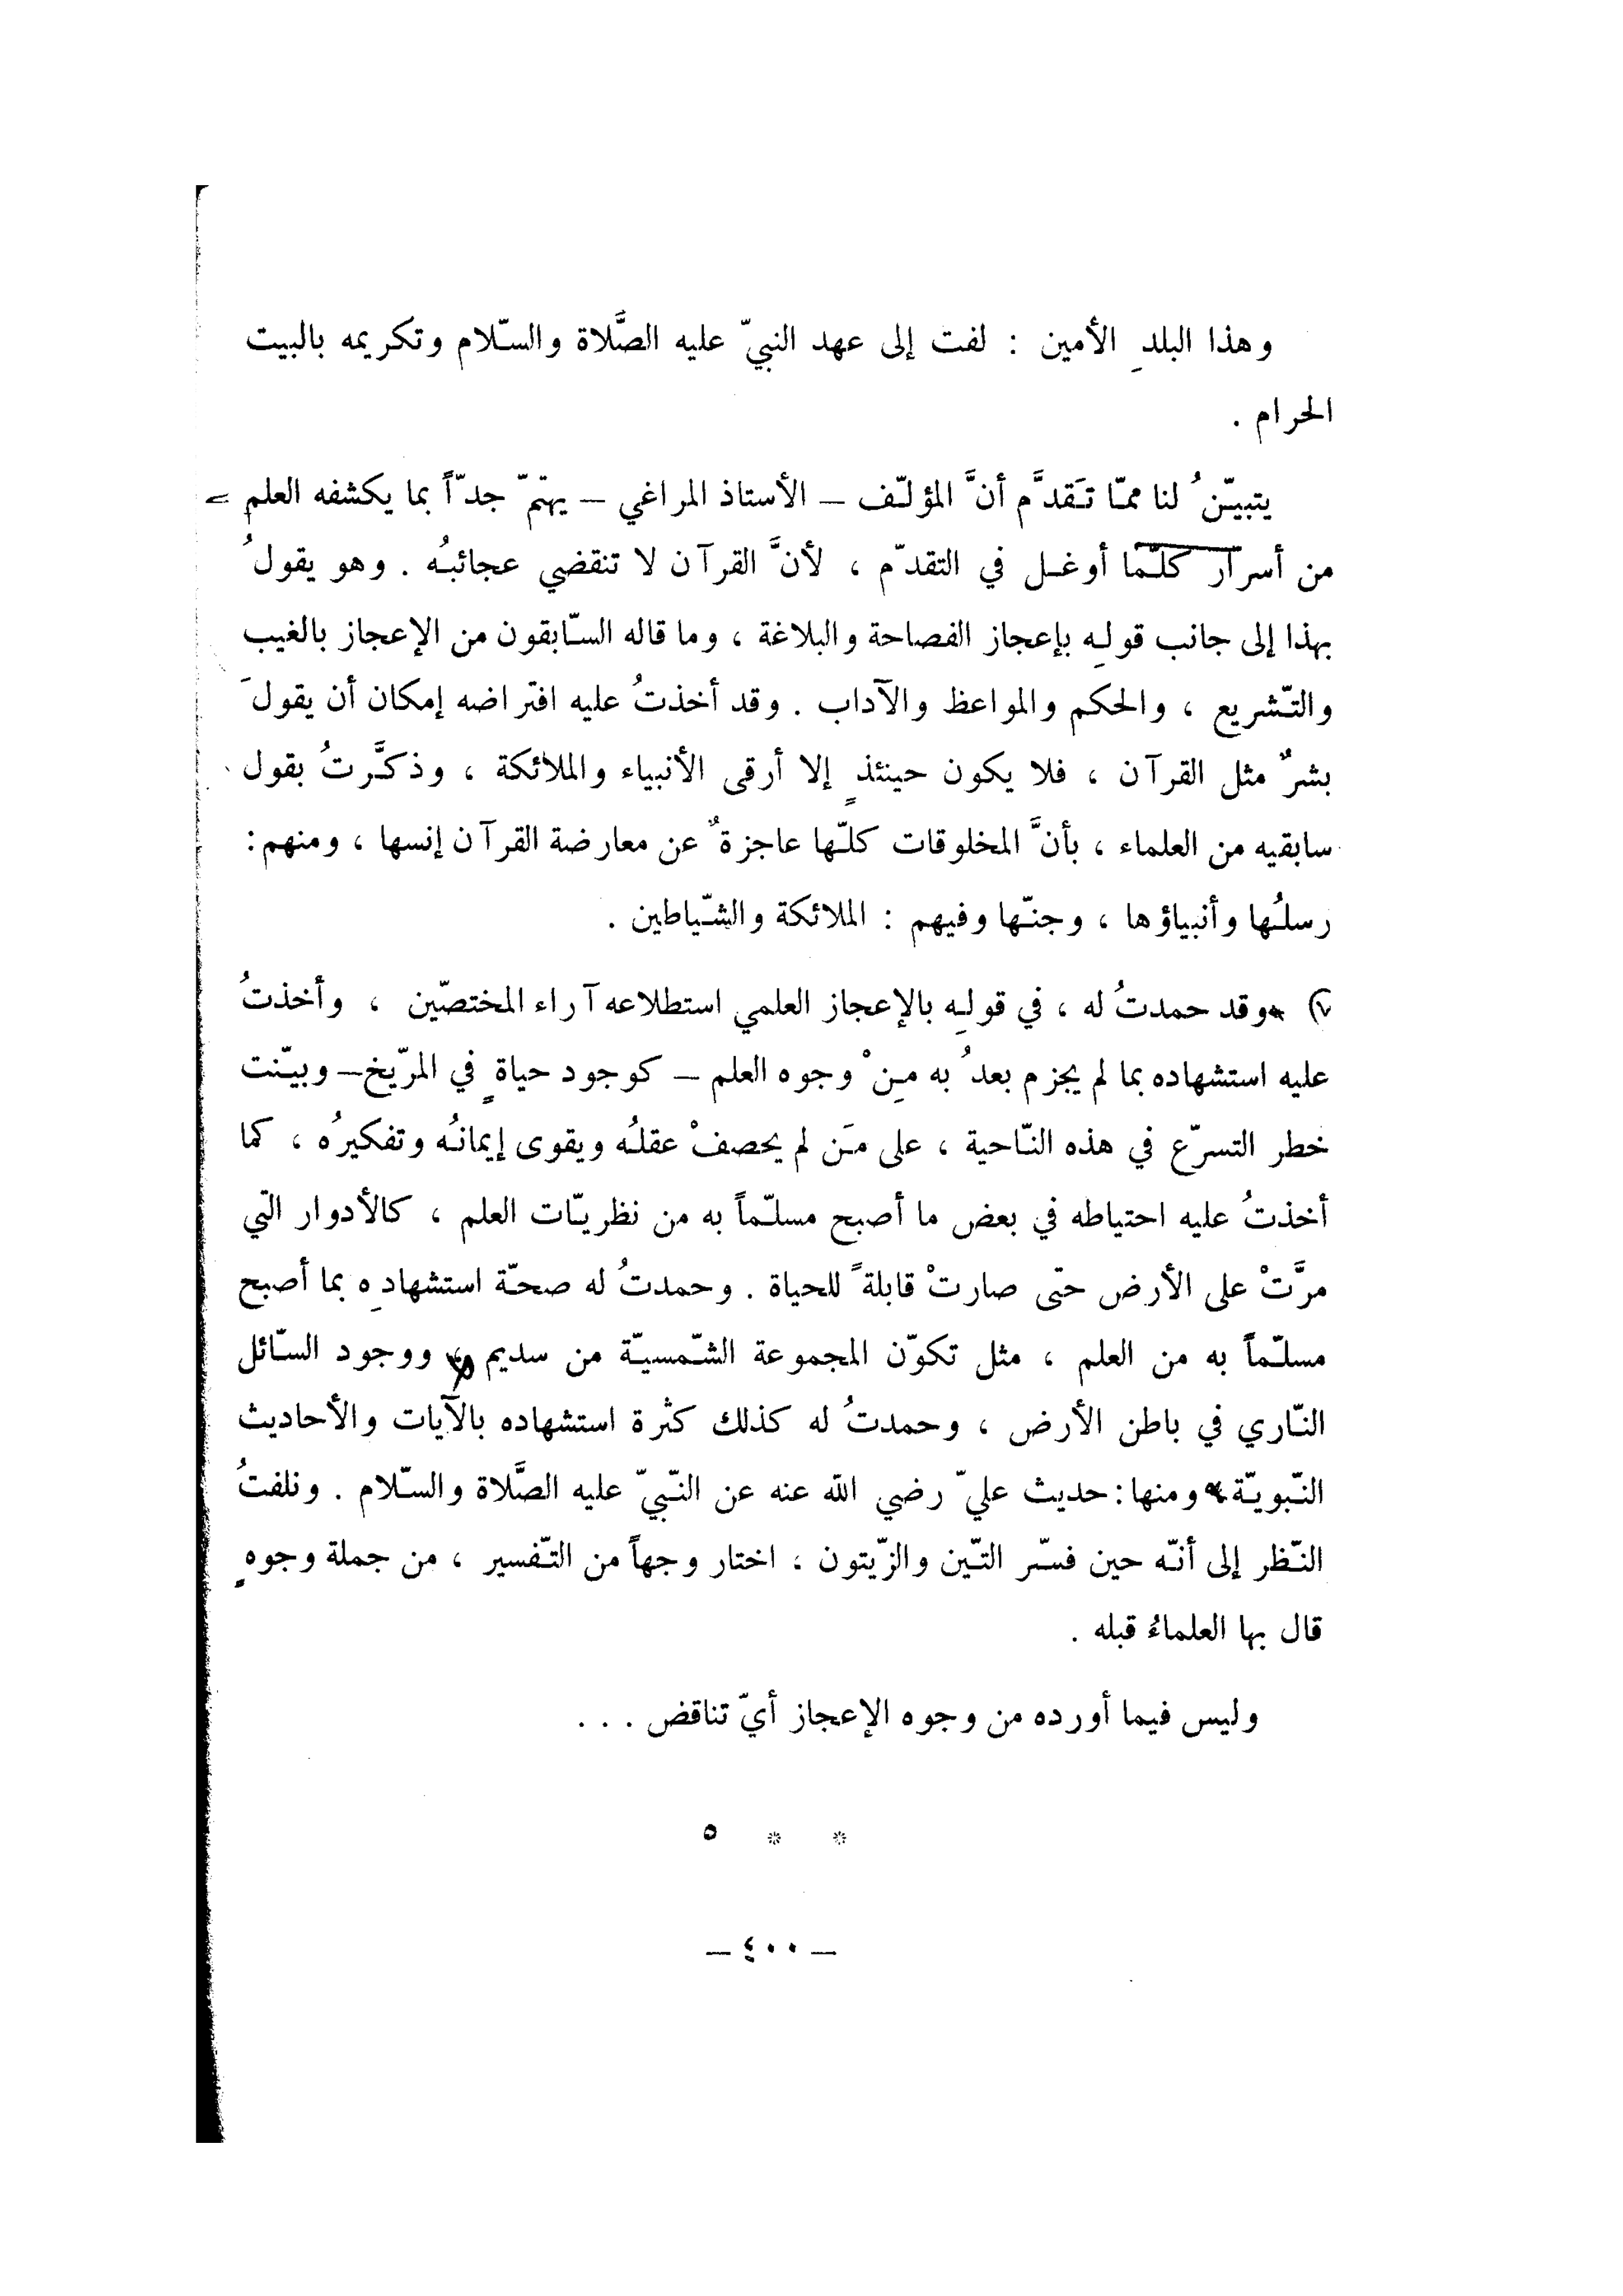 وهذا البلدِ الأمين : لفت إلى عهد النبيّ عليه الصَّلاة والسّلام وتكريمه بالبيت
الحرام .
يتبيّنُ لنا ممّا تَقدَّم أنَّ المؤلّف – الأستاذ المراغي – يهتمّ جدّاً بما يكشفه العلم
من أسرار كلّما أوغل في التقدّم ، لأنَّ القرآن لا تنقضي عجائبُه . وهو يقولُ
بهذا إلى جانب قولِه بإعجاز الفصاحة والبلاغة ، وما قاله السّابقون من الإعجاز بالغيب
والتّشريع ، والحكم والمواعظ والآداب . وقد أخذتُ عليه افتراضه إمكان أن يقولَ
بشرٌ مثل القرآن ، فلا يكون حينئذٍ إلا أرقى الأنبياء والملائكة ، وذكَّرتُ بقول
سابقيه من العلماء ، بأنَّ المخلوقات كلّها عاجزةٌ عن معارضة القرآن إنسها ، ومنهم :
رسلُها وأنبياؤها ، وجنّها وفيهم : الملائكة والشّياطين .
٧) وقد حمدتُ له ، في قولِه بالإعجاز العلمي استطلاعه آراء المختصّين ، وأخذتُ
عليه استشهاده بما لم يجزم بعدُ به مِنْ وجوه العلم – كوجود حياةٍ في المرّيخ – وبيّنت
خطر التسرّع في هذه النّاحية ، على مَن لم يحصفْ عقلُه ويقوى إيمانُه وتفكيرُه ، كما
أخذتُ عليه احتياطه في بعض ما أصبح مسلّماً به من نظريّات العلم ، كالأدوار التي
مرَّتْ على الأرض حتّى صارتْ قابلةً للحياة . وحمدتُ له صحّة استشهادِه بما أصبح
مسلّماً به من العلم ، مثل تكوّن المجموعة الشّمسيّة من سديم ، ووجود السّائل
النّاري في باطن الأرض ، وحمدتُ له كذلك كثرة استشهاده بالآيات والأحاديث
النّبويّة ومنها : حديث عليّ رضي الله عنه عن النّبيّ عليه الصَّلاة والسّلام . ونلفتُ
النّظر إلى أنّه حين فسّر التّين والزّيتون ، اختار وجهاً من التّفسير ، من جملة وجوهٍ
قال بها العلماءُ قبله .
وليس فيما أورده من وجوه الإعجاز أيّ تناقض . . .
* * ٥
– ٤٠٠ –